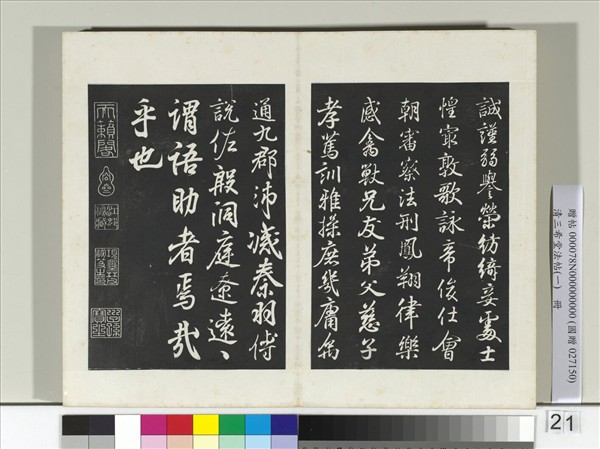 誠謹弱譽榮紡綺妾處士
惶寂敦歌詠帝俊仕會
朝審察法刑鳳翔律樂
感禽獸兄友弟父慈子
孝篤訓雅操庶幾庸
通九郡沛滅秦羽傅
說佐殷洞庭遼遠、
謂語助者焉哉
乎也
天籟閣
贈帖 000078N000000000 (國贈 027150)
清三希堂法帖(一) 冊
21